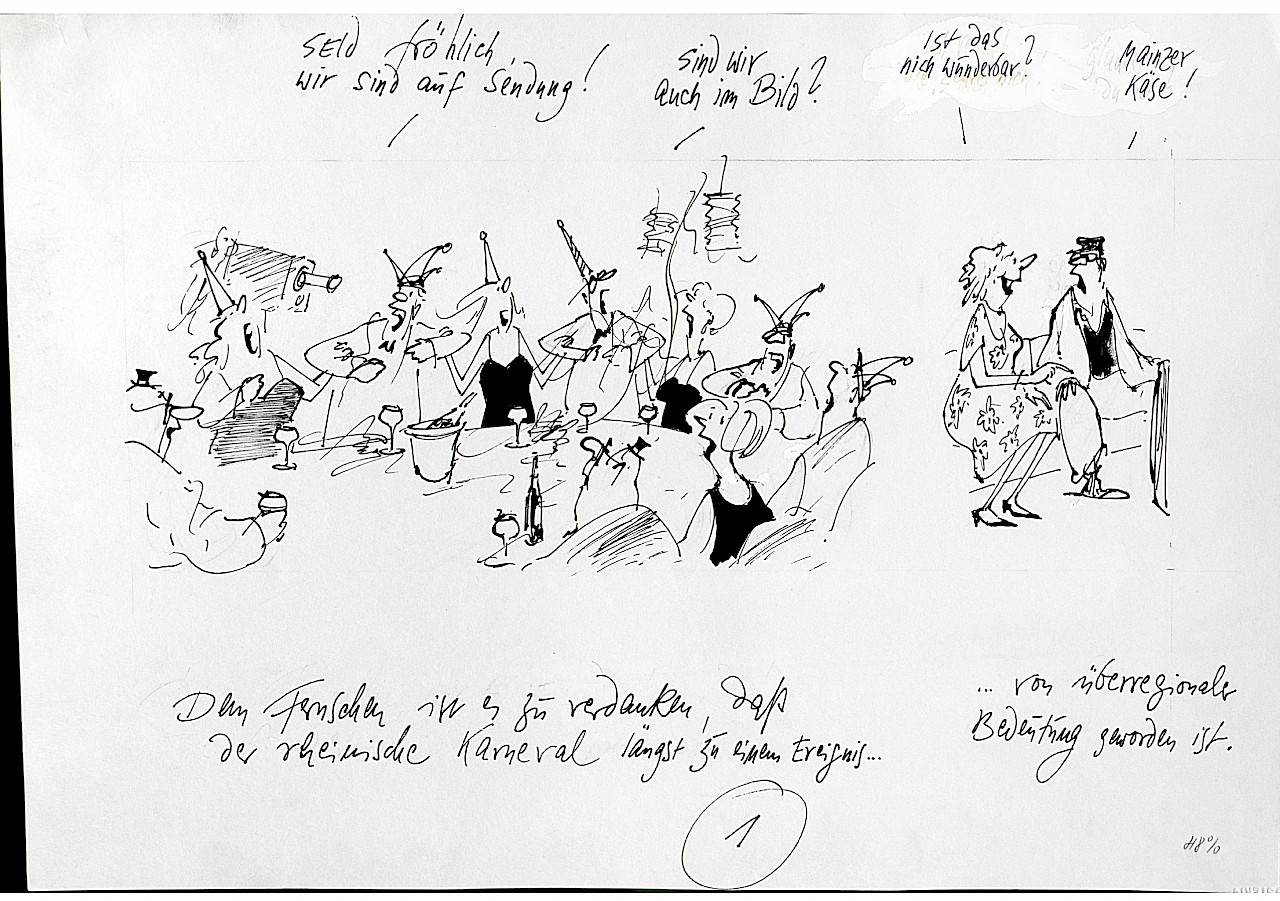 seid fröhlich,
wir sind auf Sendung!
sind wir
auch im Bild?
ist das
nich wunderbar?
Mainzer
Käse!
Dem Fernsehen ist es zu verdanken, daß
der rheinische Karneval längst zu einem Ereignis...
... von überregionaler
Bedeutung geworden ist.
1
48%